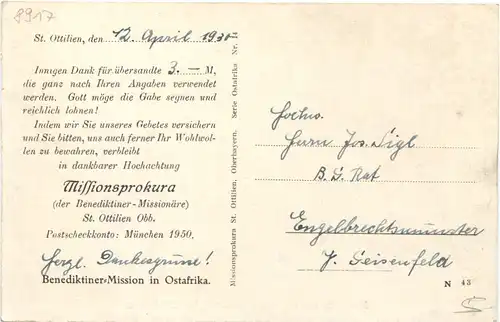 8917
St. Ottilien, den 12. April 1930
Innigen Dank für übersandte 3.— M,
die ganz nach Ihren Angaben verwendet
werden. Gott möge die Gabe segnen und
reichlich lohnen!
Indem wir Sie unseres Gebetes versichern
und Sie bitten, uns auch ferner Ihr Wohlwol-
len zu bewahren, verbleibt
in dankbarer Hochachtung
Missionsprokura
(der Benediktiner-Missionäre)
St. Ottilien Obb.
Postscheckkonto: München 1950.
Herzl. Dankesgrüsse!
Benediktiner-Mission in Ostafrika.
Missionsprokura St. Ottilien, Oberbayern. Serie Ostafrika Nr.
Hochw.
Herrn Jos. Sigl
B. G. Rat
Engelbrechtsmünster
P. Geisenfeld
N 43